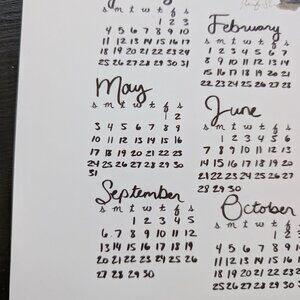 s m t w t f s
1 2 3
4 5 6 7 8 9 10
11 12 13 14 15 16 17
18 19 20 21 22 23 24
25 26 27 28 29 30 31
February
s m t w t f s
1 2 3 4 5 6 7
8 9 10 11 12 13 14
15 16 17 18 19 20 21
22 23 24 25 26 27 28
May
s m t w t f s
1 2
3 4 5 6 7 8 9
10 11 12 13 14 15 16
17 18 19 20 21 22 23
24 25 26 27 28 29 30
31
June
s m t w t f s
1 2 3 4 5 6
7 8 9 10 11 12 13
14 15 16 17 18 19 20
21 22 23 24 25 26 27
28 29 30
September
s m t w t f s
1 2 3 4 5
6 7 8 9 10 11 12
13 14 15 16 17 18 19
20 21 22 23 24 25 26
27 28 29 30
October
s m t w t f
1 2
4 5 6 7 8 9
11 12 13 14 15 16
18 19 20 21 22 23
25 26 27 28 29